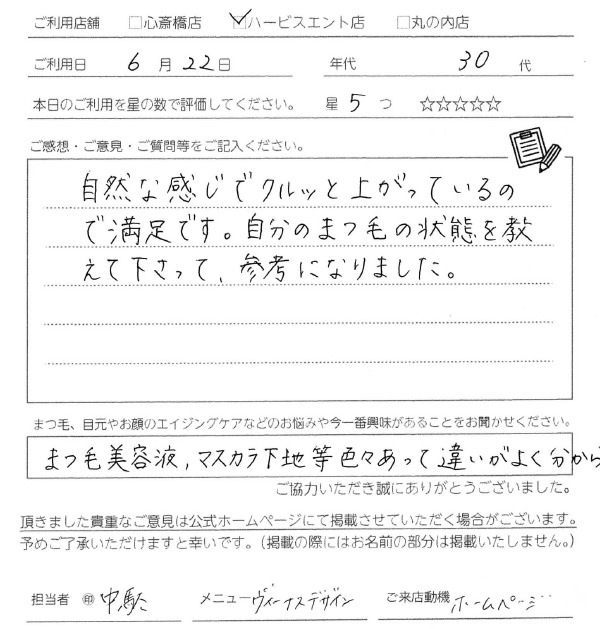 ご利用店舗 □心斎橋店 ☑ハービスエント店 □丸の内店
ご利用日 6月22日 年代 30代
本日のご利用を星の数で評価してください。 星5つ ☆☆☆☆☆
ご感想・ご意見・ご質問等をご記入ください。
自然な感じでクルッと上がっているの
で満足です。自分のまつ毛の状態を教
えて下さって、参考になりました。
まつ毛、目元やお顔のエイジングケアなどのお悩みや今一番興味があることをお聞かせください。
まつ毛美容液,マスカラ下地等色々あって違いがよく分から
ご協力いただき誠にありがとうございました。
頂きました貴重なご意見は公式ホームページにて掲載させていただく場合がございます。
予めご了承いただけますと幸いです。(掲載の際にはお名前の部分は掲載いたしません。)
担当者 ㊞ メニュー ヴィーナスデザイン ご来店動機 ホームページ